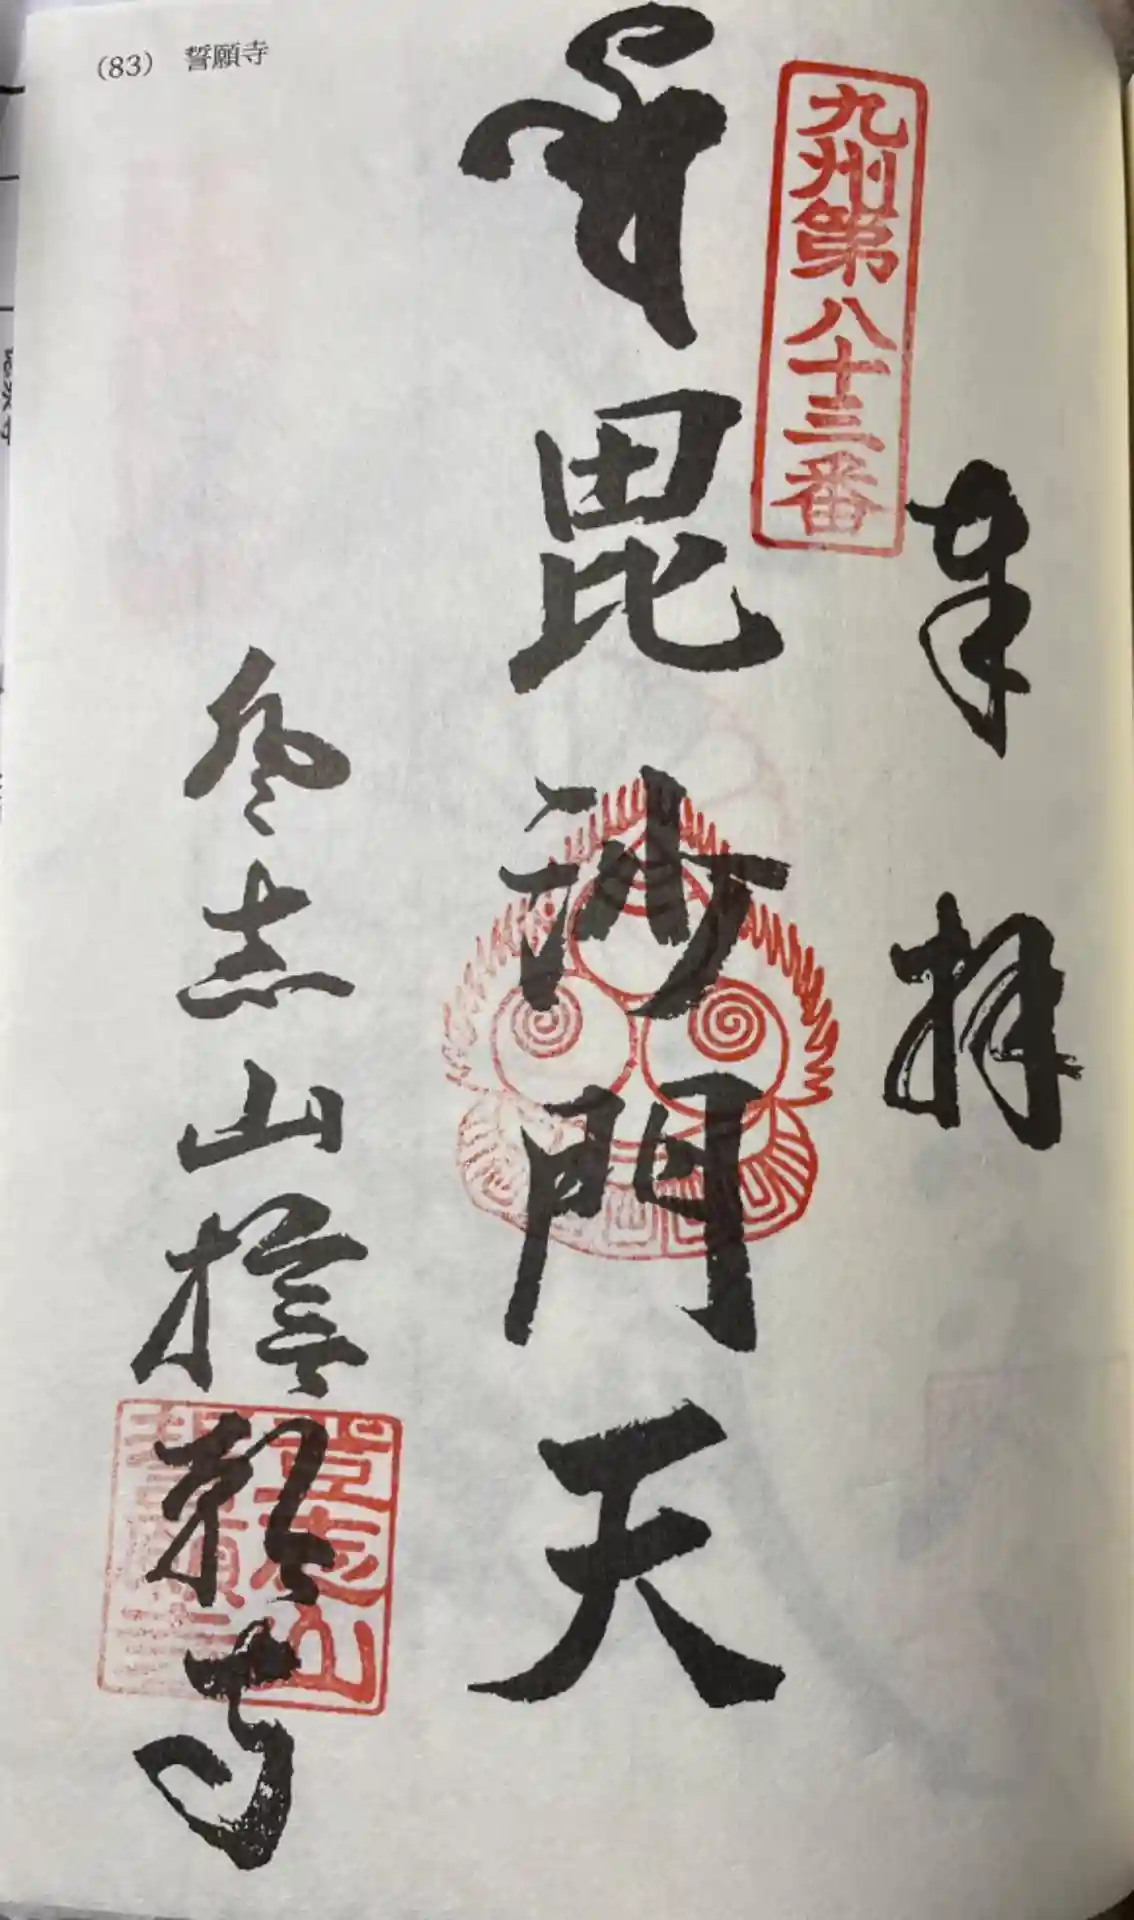 (83) 誓願寺
九州第八十三番
奉拝
毘沙門天
登志山誓願寺
登志山
誓願寺